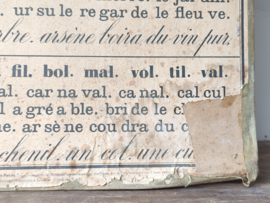 ur su le re gar de le fleu ve.
arsène boira du vin pur.
fil. bol. mal. vol. til. val.
al. car na val. ca nal. cal cul
l a gré a ble. bri de le c
ne. ar sè ne cou dra du c
chenil. un col. une cu